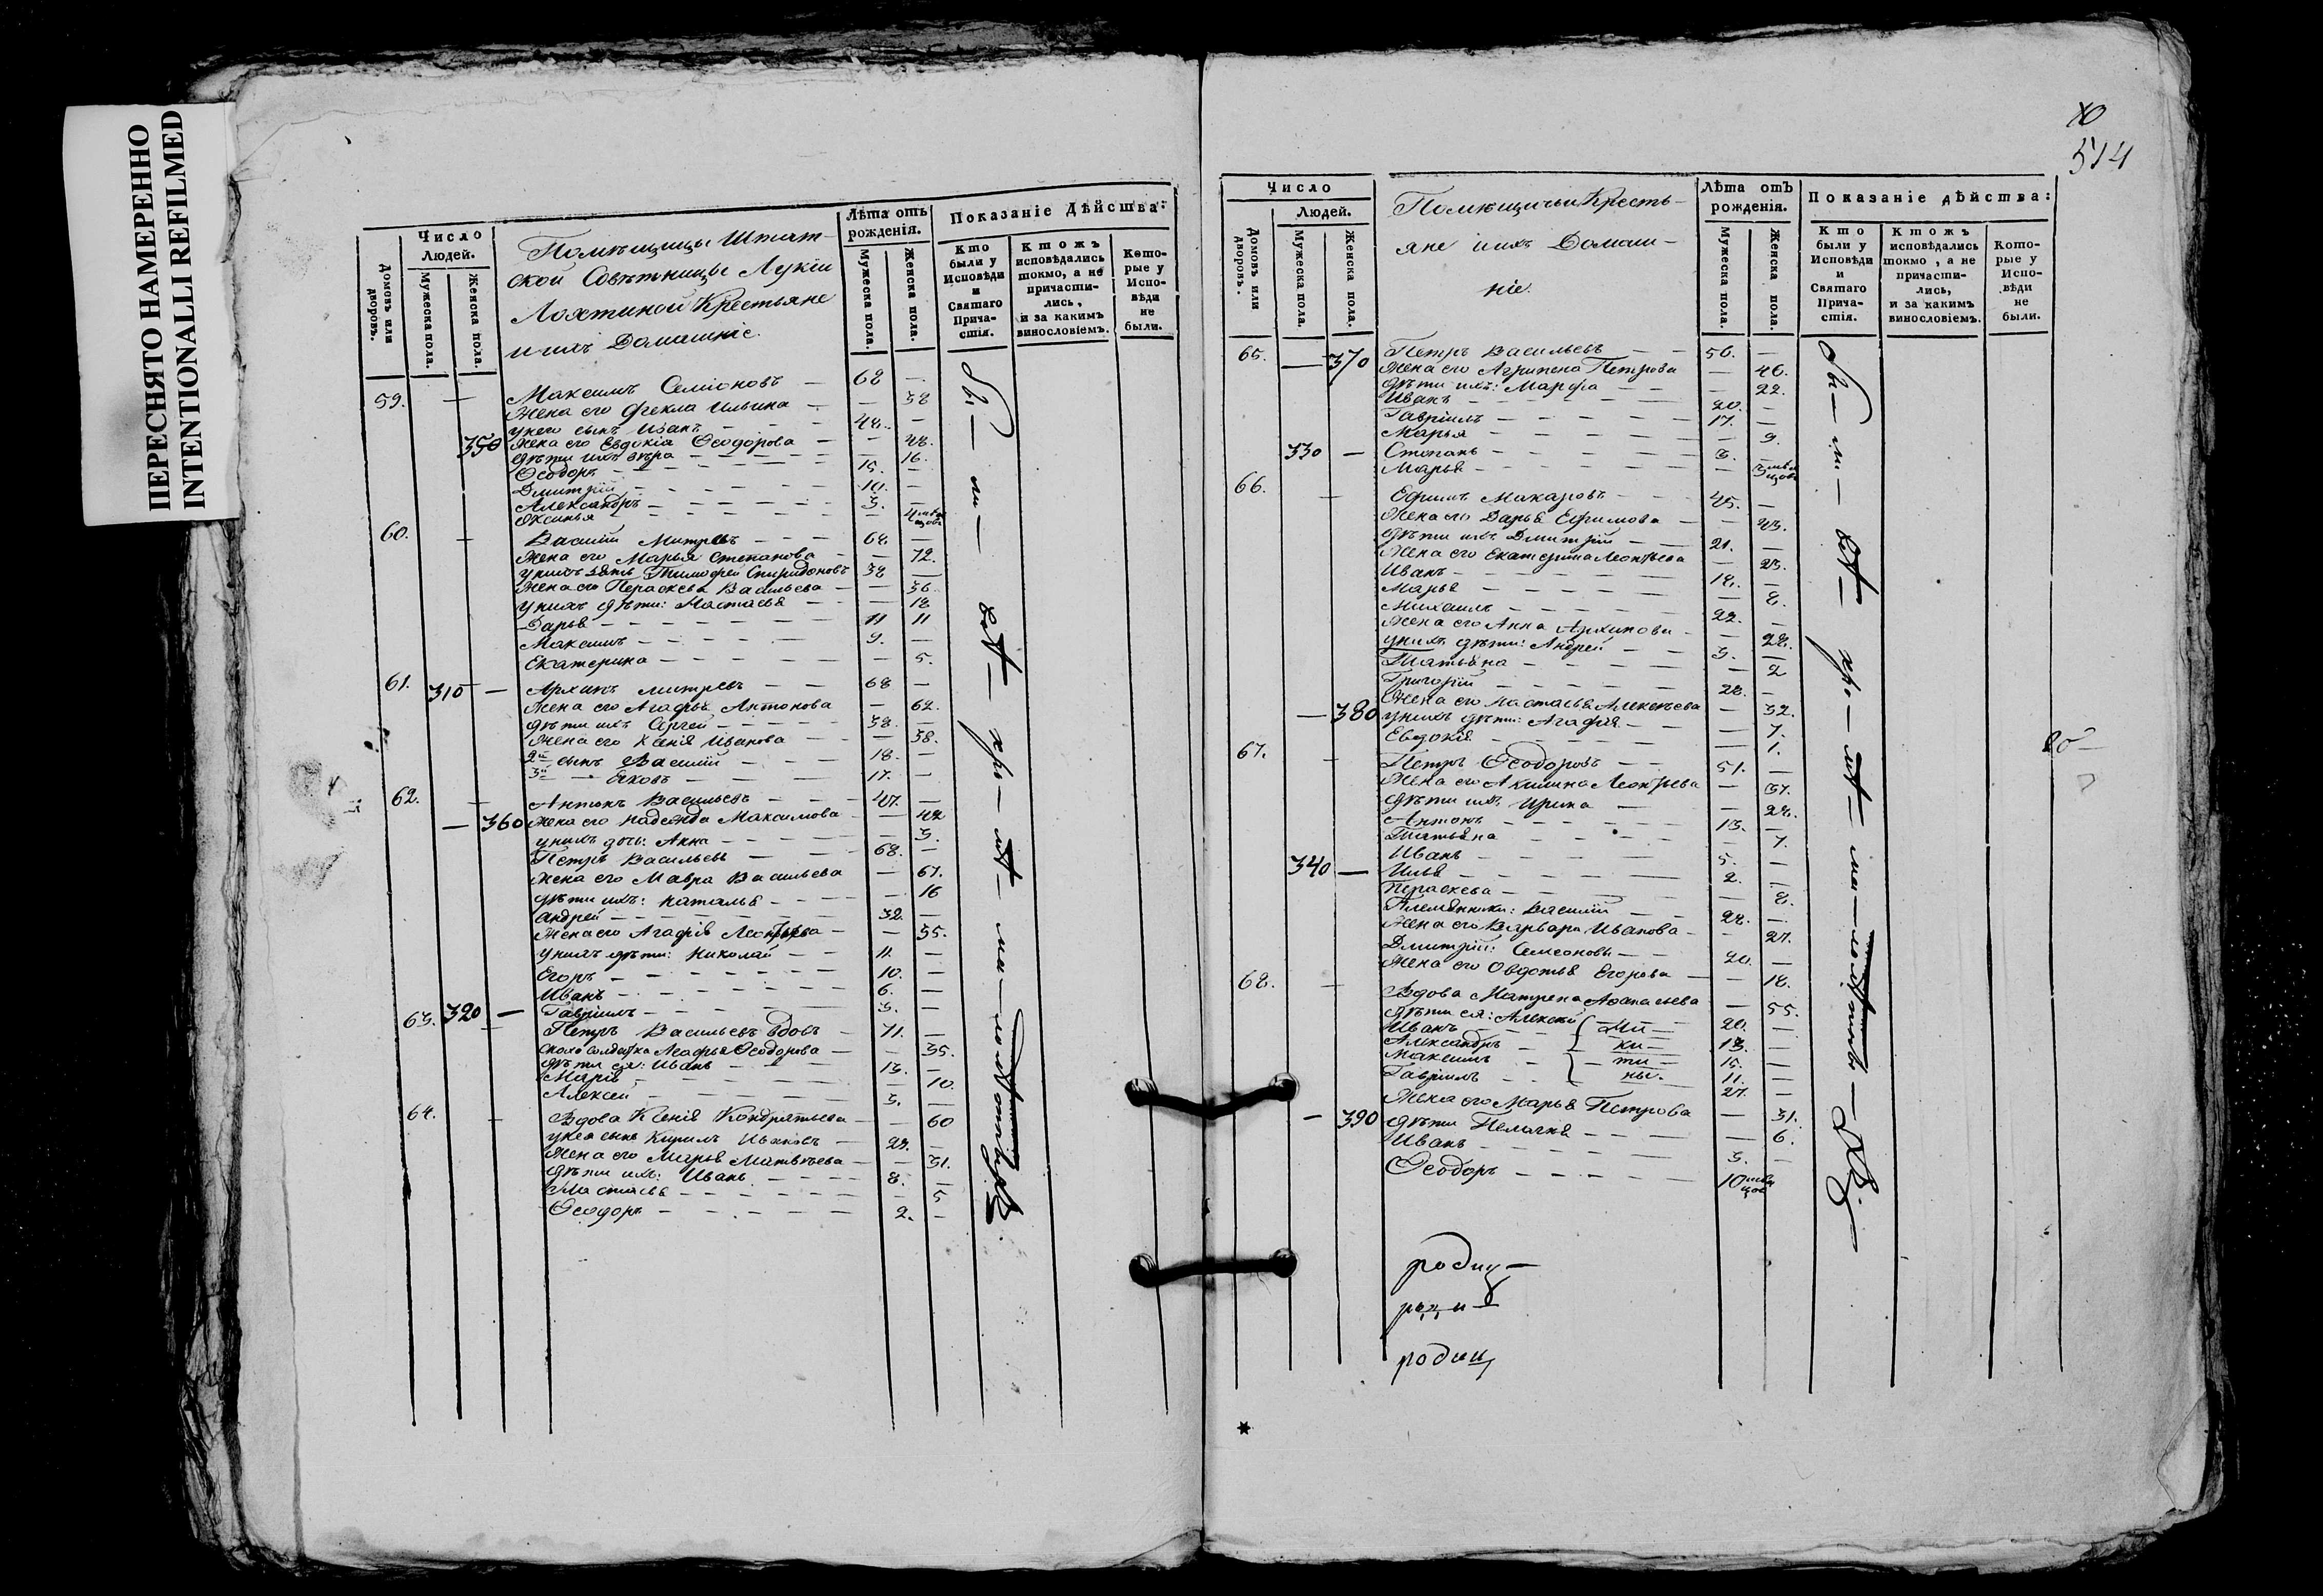 ПЕРЕСНЯТО НАМЕРЕННО
INTENTIONALLI REFILMED
Число
Людей.
Домовъ или дворовъ.
Мужеска пола.
Женска пола.
Помѣщицы Штат-
ской Совѣтницы Лукіи
Лохтиной Крестьяне
и ихъ Домашніе.
Лѣта отъ рожденія.
Мужеска пола.
Женска пола.
Показаніе Дѣйства:
Кто были у Исповѣди и Святаго Прича-стія.
Ктожъ исповѣдались токмо, а не причасти-лись, и за какимъ винословіемъ.
Кото-рые у Испо-вѣди не были.
59. — Максимъ Семіоновъ — 68 —
Жена его Фекла Ильина — — 58
у него сынъ Иванъ — 48. —
350 Жена его Евдокія Ѳеодорова — — 48.
дѣти ихъ Вѣра — — 16.
Ѳеодоръ — 15. —
Дмитрій — 10. —
Александръ — 3. —
Аксинья — — 4 мѣсяцовъ
60. — Василій Митревъ — 68 —
Жена его Марья Степанова — — 72.
у нихъ зять Тимофей Спиридоновъ 38 —
Жена его Пераскева Васильева — — 36.
у нихъ дѣти: Настасья — — 18
Дарья — 11 11
Максимъ — 9. —
Екатерина — — 5.
61. 310 — Архипъ Митревъ — 68 —
Жена его Агафья Антонова — 62.
дѣти ихъ Сергей — 38. —
Жена его Ксенія Иванова — — 38.
2й сынъ Василій — 18. —
3й — Яковъ — 17. —
62. — Антонъ Васильевъ — 47. —
— 360 Жена его Надежда Максимова — — 48
у нихъ дочь: Анна — — 3.
Петръ Васильевъ — 68. —
Жена его Мавра Васильева — 67.
дѣти ихъ: Наталья — — 16
Андрей — 32. —
Жена его Агафія Леонтьева — — 35.
у нихъ дѣти: Николай — 11. —
Егоръ — 10. —
Иванъ — 6. —
320 — Гавріилъ — 3. —
63. — Петръ Васильевъ вдовъ — 71. —
Солдатка Агафья Ѳеодорова — — 35.
дѣти ея: Иванъ — 13. —
Марія — — 10.
Алексей — 3. —
64. — Вдова Ксенія Кондратьева — — 60
у нея сынъ Кирилъ Ивановъ — 28. —
Жена его Марья Матвѣева — — 31.
дѣти ихъ: Иванъ — 8. —
Настасья — — 5
Ѳеодоръ — 2. —
514
Число
Людей.
Домовъ или дворовъ.
Мужеска пола.
Женска пола.
Помѣщичьи Кресть-
яне и ихъ Домаш-
ніе.
Лѣта отъ рожденія.
Мужеска пола.
Женска пола.
Показаніе дѣйства:
Кто были у Исповѣди и Святаго Прича-стія.
Ктожъ исповѣдались токмо, а не причасти-лись, и за какимъ винословіемъ.
Кото-рые у Испо-вѣди не были.
65. — 370 Петръ Васильевъ — 56. —
Жена его Агрипена Петрова — 46.
дѣти ихъ: Марфа — — 22.
Иванъ — 20. —
Гавріилъ — 17. —
Марья — — 9.
330 — Степанъ — 3. —
Марья — — 3 мѣсяцовъ
66. — Ефимъ Макаровъ — 45. —
Жена его Дарья Ефимова — — 43.
дѣти ихъ Дмитрій — 21. —
Жена его Екатерина Леонтьева — 23.
Иванъ — 18. —
Марья — — 8.
Михаилъ — 22. —
Жена его Анна Архипова — — 22.
у нихъ дѣти: Андрей — 3. —
Татьяна — — 2
Григорій — 28. —
Жена его Настасья Алексеева — 32.
— 380 у нихъ дѣти: Агафія — — 7.
Евдокія — — 1.
67. — Петръ Ѳеодоровъ — 51. —
Жена его Акилина Леонтьева — 51.
дѣти ихъ Ирина — — 28.
Антонъ — 13. —
Татьяна — — 7.
Иванъ — 5. —
340 — Илья — 2. —
Пераскева — — 8.
Племянники: Василій — 28. —
Жена его Варвара Иванова — — 27.
Дмитрій: Семеоновъ — 20. —
Жена его Овдотья Егорова — — 18.
68. — Вдова Матрена Афанасьева — 55.
дѣти ея: Алексей — 20. —
Иванъ — 18. —
Александръ — 15. —
Максимъ — 11. —
Гавріилъ — 27. —
Жена его Марья Петрова — 31.
— 390 дѣти Пелагея — — 6.
Иванъ — 3. —
Ѳеодоръ — 10 мѣсяцов
*